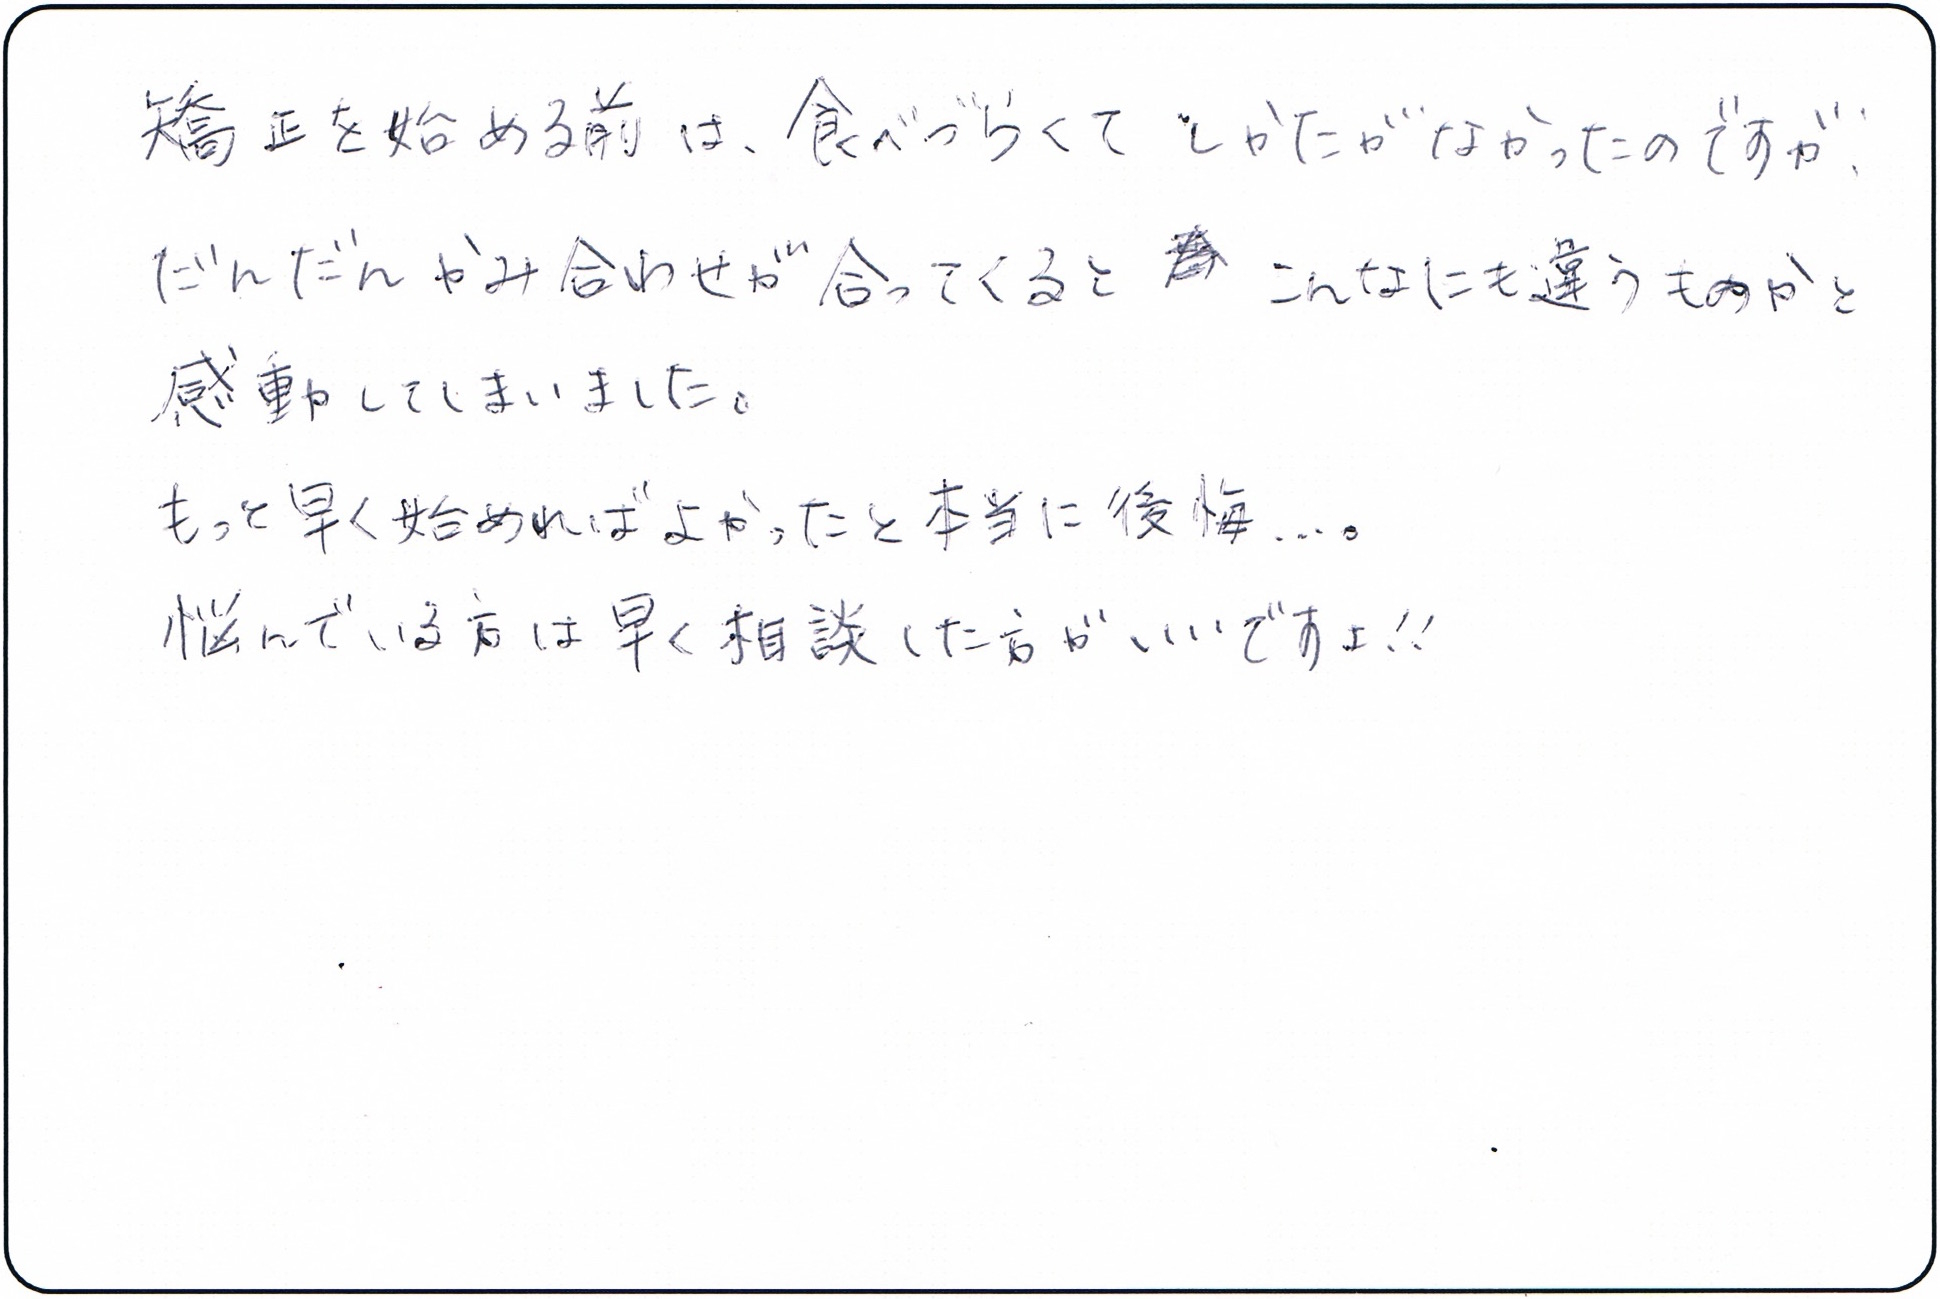 矯正を始める前は、食べづらくてしかたがなかったのですが、
だんだんかみ合わせが合ってくるとこんなにも違うものかと
感動してしまいました。
もっと早く始めればよかったと本当に後悔…。
悩んでいる方は早く相談した方がいいですよ!!